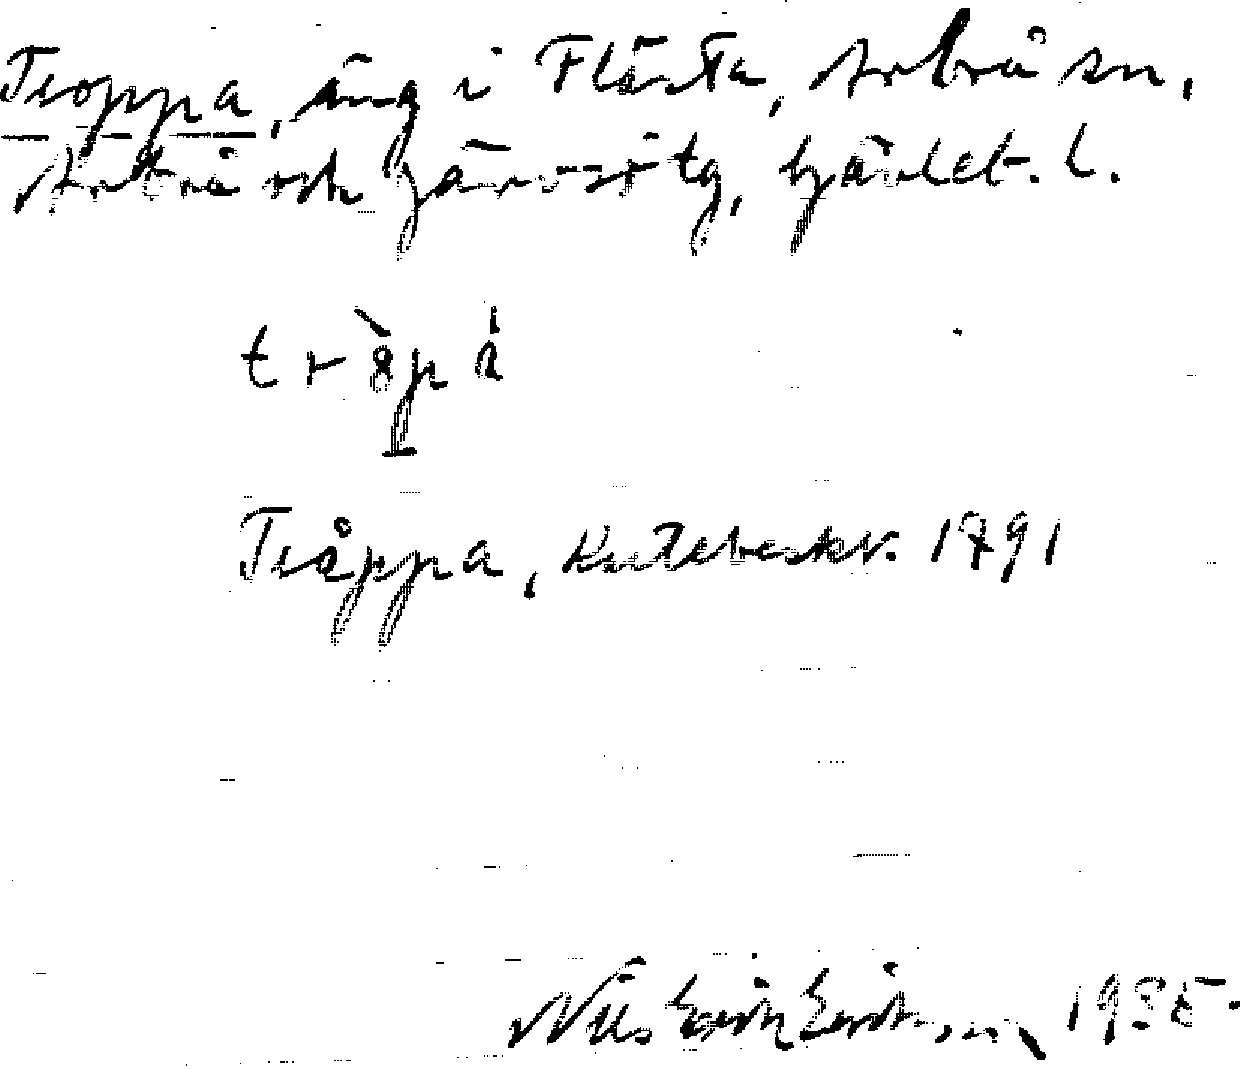 Troppa, äng i Flästa, Arbrå sn,
Arbrå och Järvsö tg, Gävlebr. l.
Tråppa, Kartebeskr. 1791
Nils Erik Eriksson 1935.